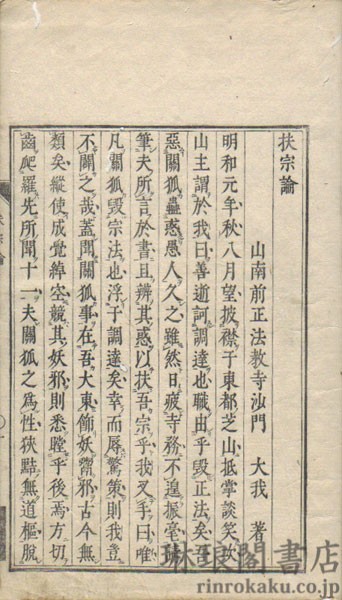 扶宗論
山南前正法教寺沙門　大我　著
明和元年秋八月望披襟于東都芝山抵掌談笑次
山主謂於我曰善逝訶調達也職由乎毀正法矣吾
惡關狐蠱惑愚人久之雖然日疲寺務不遑振毫
筆夫所言於書且辨其惑以扶吾宗乎我叉手曰唯
凡關狐毀宗法也浮于調達矣幸而辱驚策則我豈
不關之哉蓋聞關狐事在吾大東飾妖蠹邪古今無
類矣縱使成覺綽空競其妖邪則悉瞠乎後焉方切
齒爬羅先所聞十一夫關狐之為性狹點無道樞脫
扶宗論
琳琅閣書店
rinrokaku.co.jp